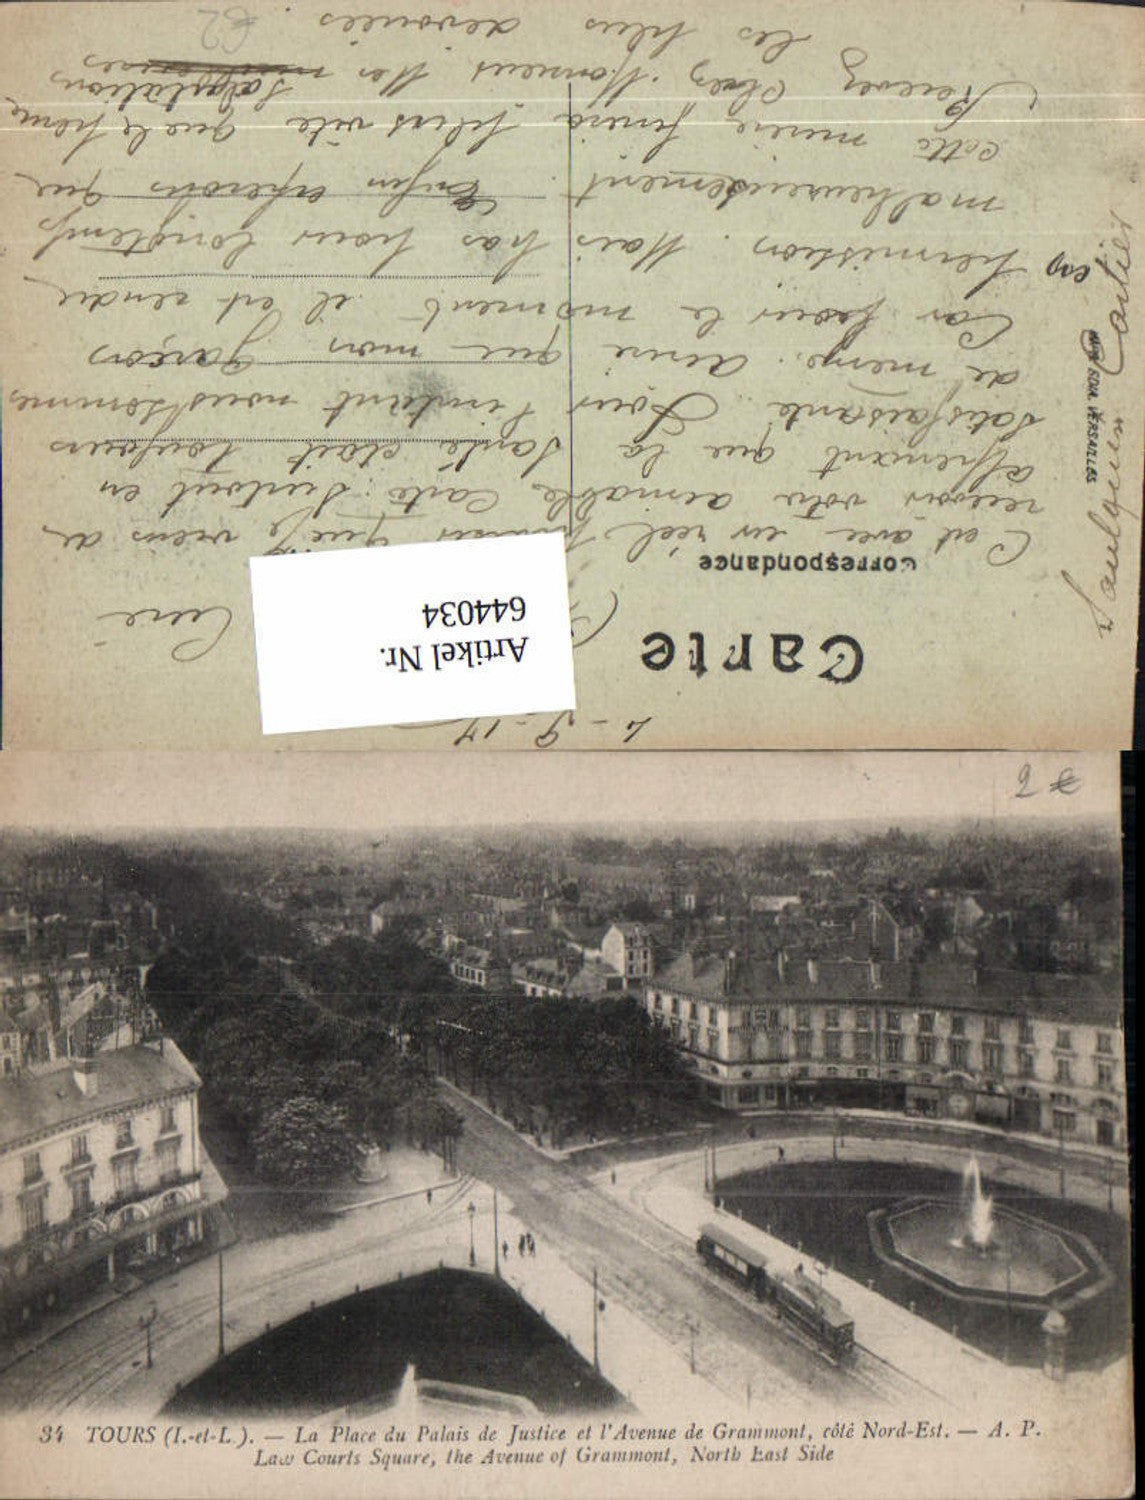 4-9-17
Carte
Artikel Nr.
644034
Correspondance
C'est avec un réel plaisir que je viens de
recevoir votre aimable Carte. Surtout en
apprenant que la santé était toujours
satisfaisante. Pour l'instant nous sommes
de même. Ainsi que mon garçon
Car pour le moment il est rendu
en permission. Mais pas pour longtemps
malheureusement. Enfin espérons que
cette misère finira plus vite que le
Recevez Cher Monsieur Mes Salutations
les plus dévouées
62
VERSAILLES
2
34 TOURS (I.-et-L.). — La Place du Palais de Justice et l'Avenue de Grammont, côté Nord-Est. — A. P.
Law Courts Square, the Avenue of Grammont, North East Side